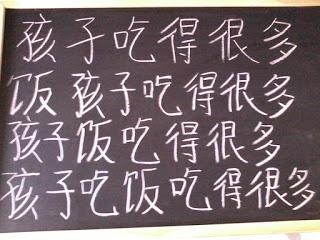 孩子吃得很多
饭孩子吃得很多
孩子饭吃得很多
孩子吃饭吃得很多